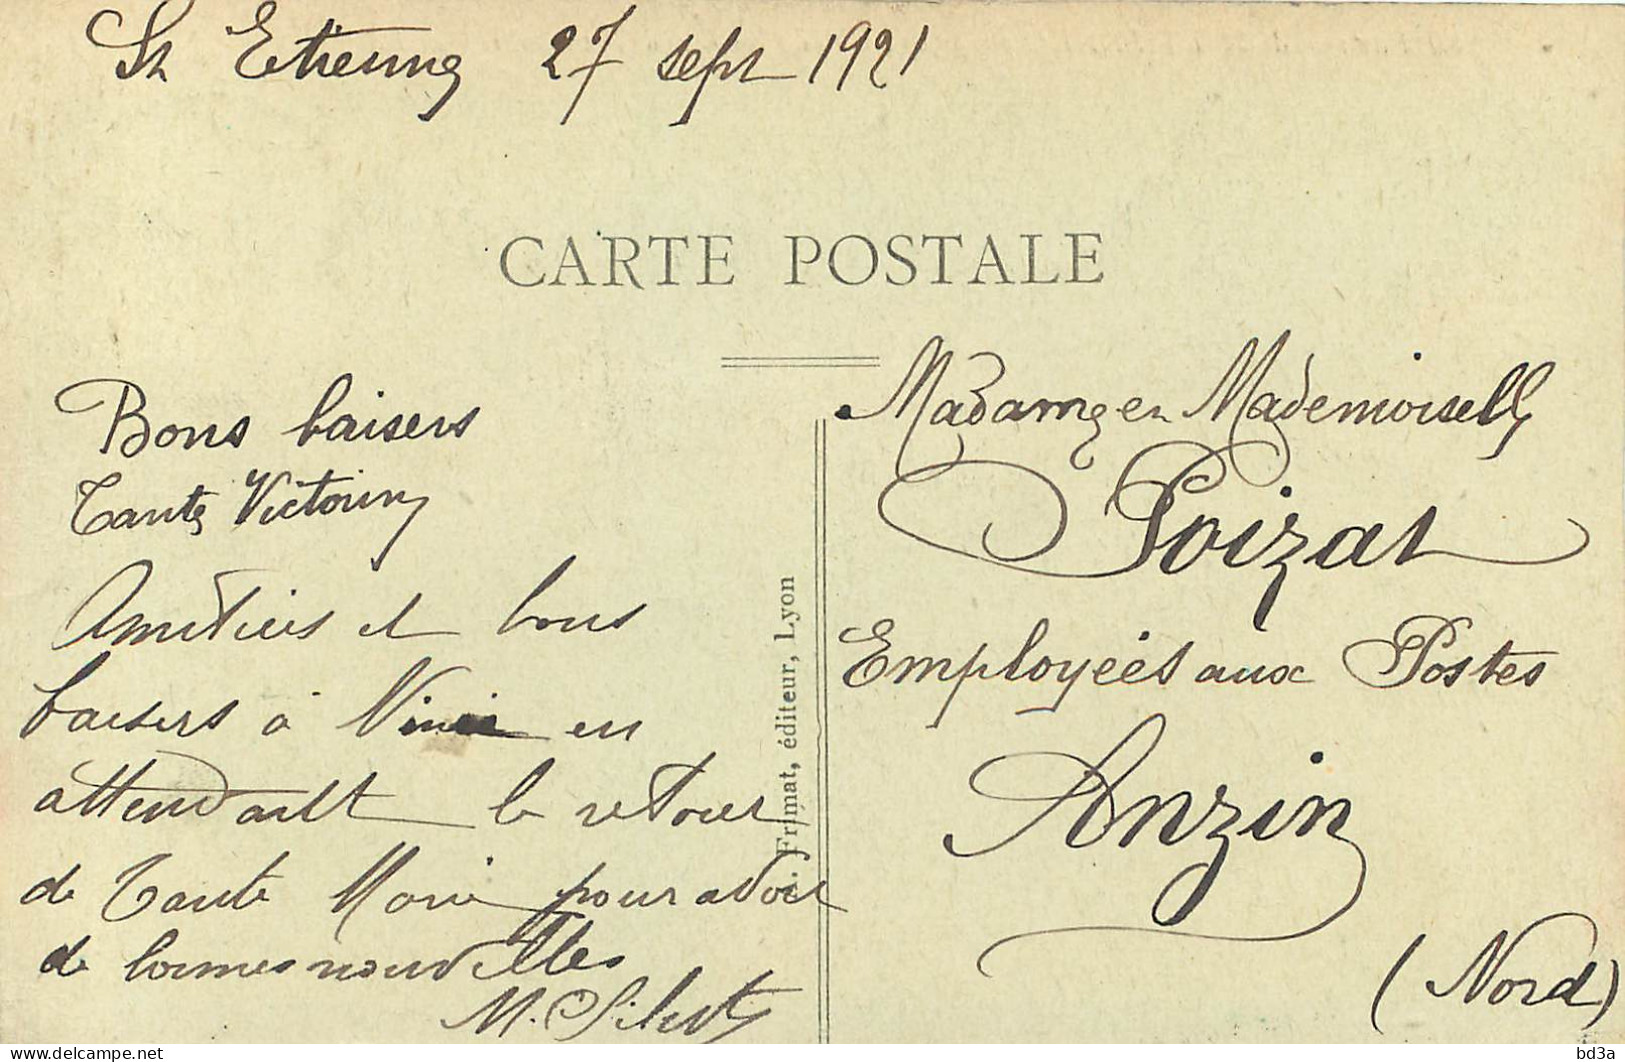 St Etienne 27 sept 1921
CARTE POSTALE
Bons baisers
Tante Victorine
Amitiés et bons
baisers à Ninie en
attendant le retour
de Tante Marie pour avoir
de bonnes nouvelles
M.
Frimat, éditeur, Lyon
Madame et Mademoiselle
Poizat
Employées aux Postes
Anzin
(Nord)
delcampe.net
bd3a